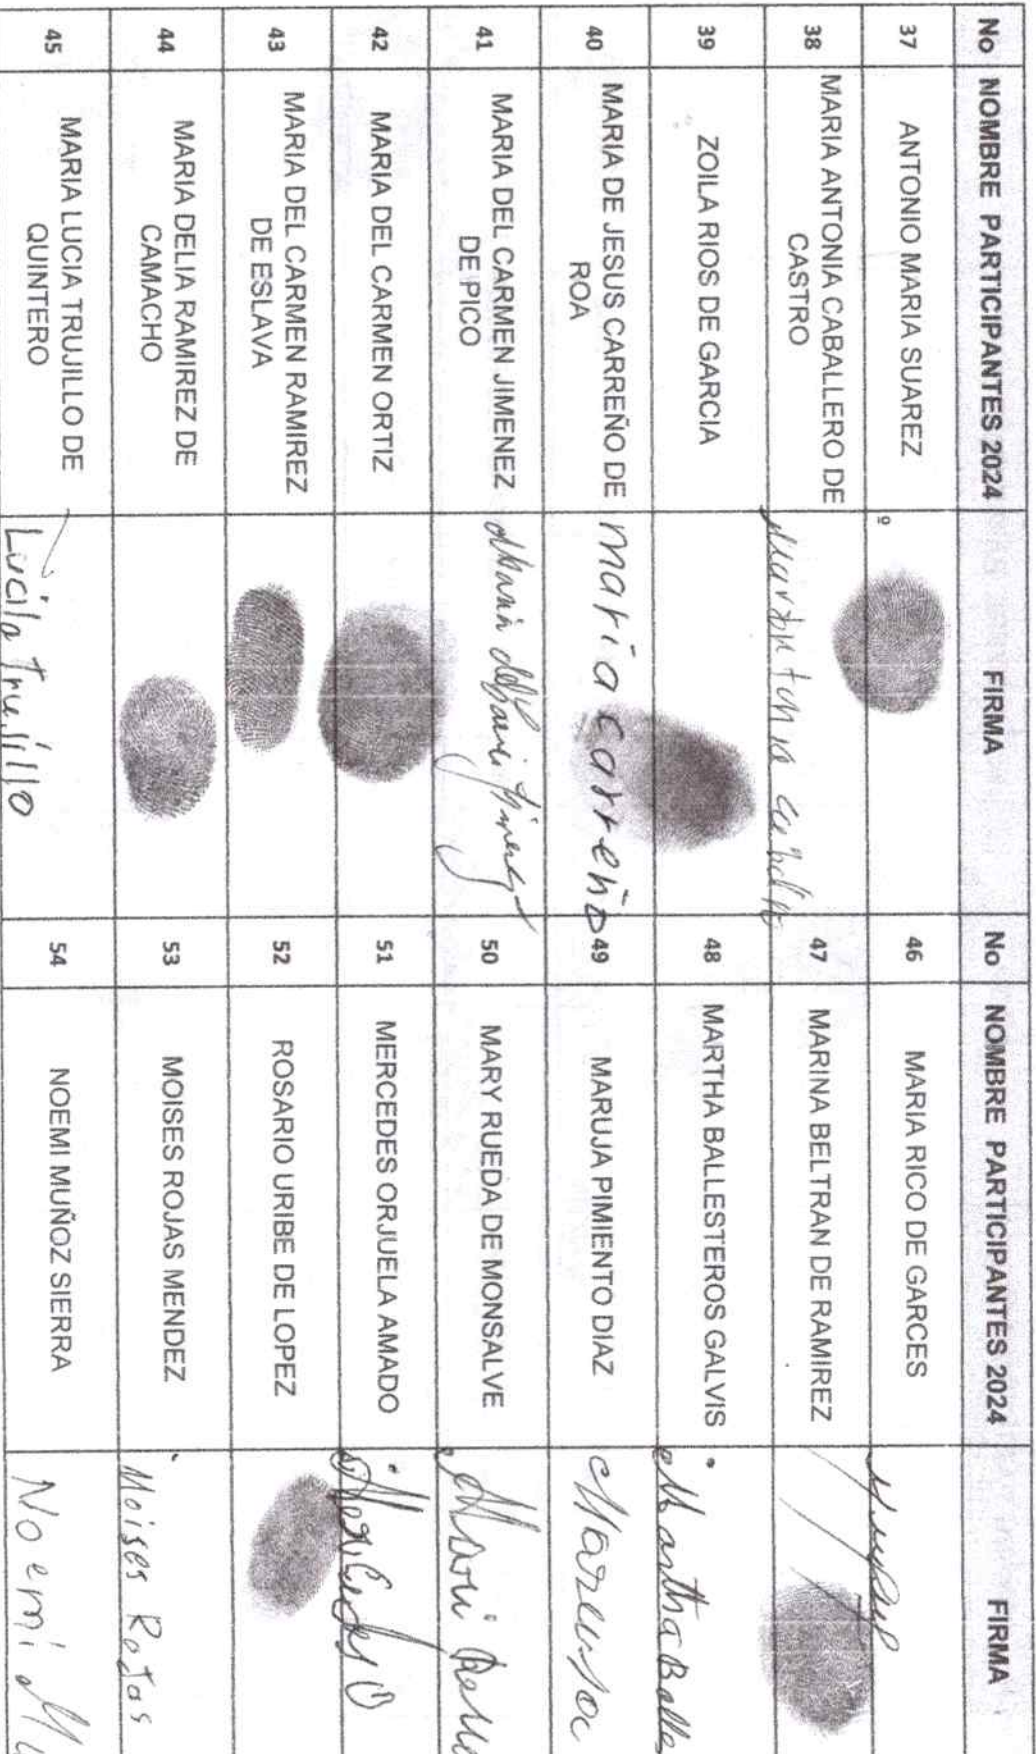 No NOMBRE PARTICIPANTES 2024 FIRMA No NOMBRE PARTICIPANTES 2024 FIRMA
37 ANTONIO MARIA SUAREZ 46 MARIA RICO DE GARCES
38 MARIA ANTONIA CABALLERO DE
CASTRO 47 MARINA BELTRAN DE RAMIREZ
39 ZOILA RIOS DE GARCIA 48 MARTHA BALLESTEROS GALVIS Martha Balle
40 MARIA DE JESUS CARREÑO DE
ROA maria carreño 49 MARUJA PIMIENTO DIAZ
41 MARIA DEL CARMEN JIMENEZ
DE PICO 50 MARY RUEDA DE MONSALVE
42 MARIA DEL CARMEN ORTIZ 51 MERCEDES ORJUELA AMADO
43 MARIA DEL CARMEN RAMIREZ
DE ESLAVA 52 ROSARIO URIBE DE LOPEZ
44 MARIA DELIA RAMIREZ DE
CAMACHO 53 MOISES ROJAS MENDEZ Moises Rojas
45 MARIA LUCIA TRUJILLO DE
QUINTERO Lucila Trujillo 54 NOEMI MUÑOZ SIERRA Noemi